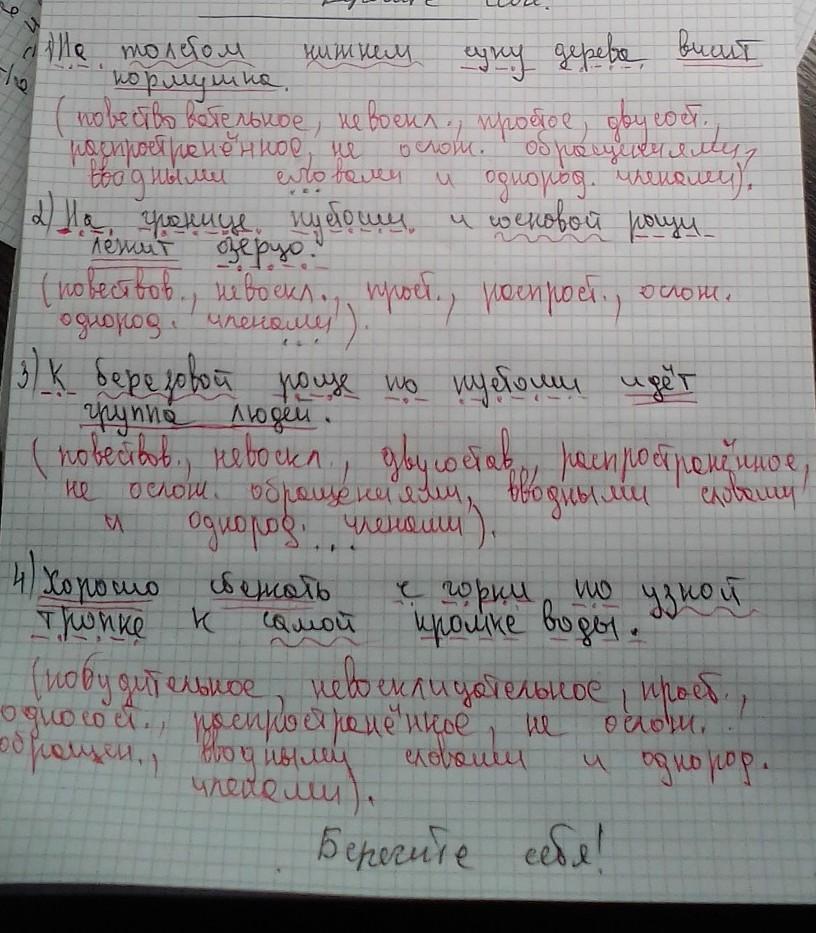 1) На толстом нижнем суку дерева висит
кормушка.
(повествовательное, невоскл., простое, двусост.,
распространённое, не ослож. обращениями,
вводными словами и однород. членами).
2) На границе пустоши и сосновой рощи
лежит озерцо.
(повествов., невоскл., прост., распрост., ослож.
однород. членами).
3) К березовой роще по пустоши идёт
группа людей.
(повествов., невоскл., двусостав., распространённое,
не ослож. обращениями, вводными словами
и однород. членами).
4) Хорошо сбежать с горки по узкой
тропке к самой кромке воды.
(побудительное, невосклицательное, прост.,
односост., распространённое, не ослож.
обращен., вводными словами и однород.
членами).
Берегите себя!